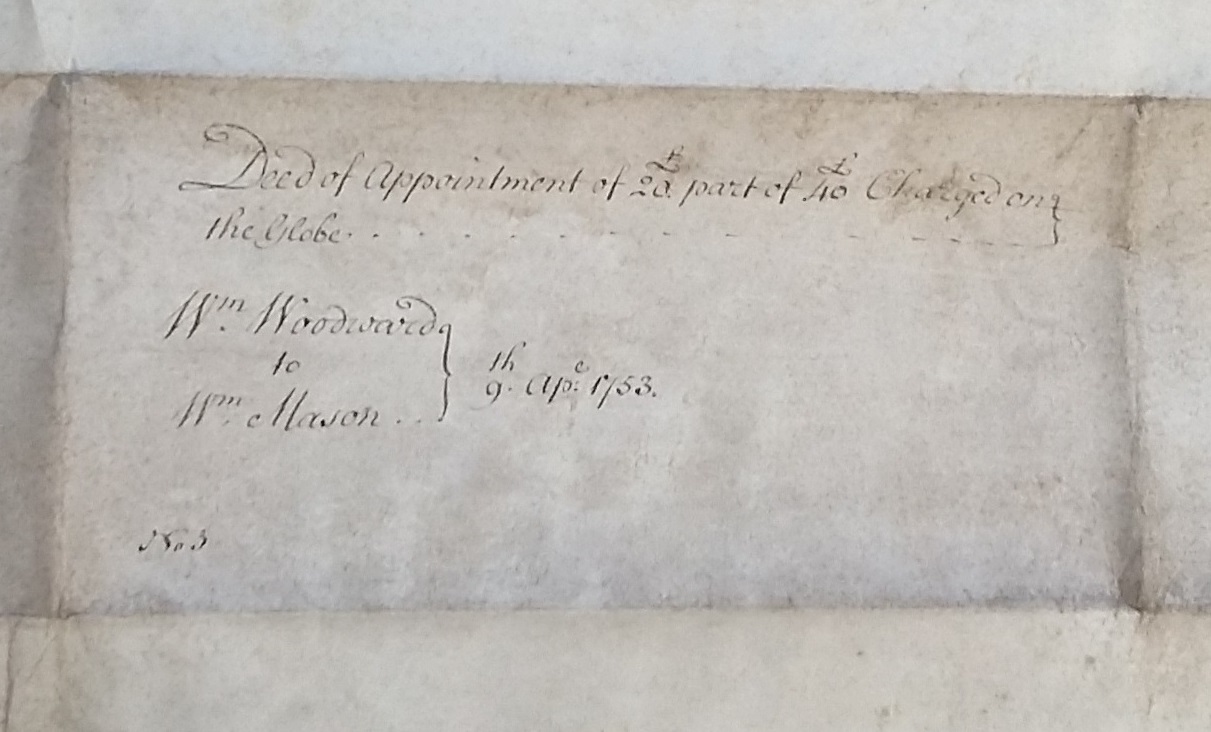 Deed of Appointment of 20.£ part of 40£ Charged on }
the Globe. . . . . . . . . . . .
Wm. Woodward }
to
9.th Ap:e 1753.
Wm. Mason . .
No 3